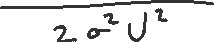 2σ²U²